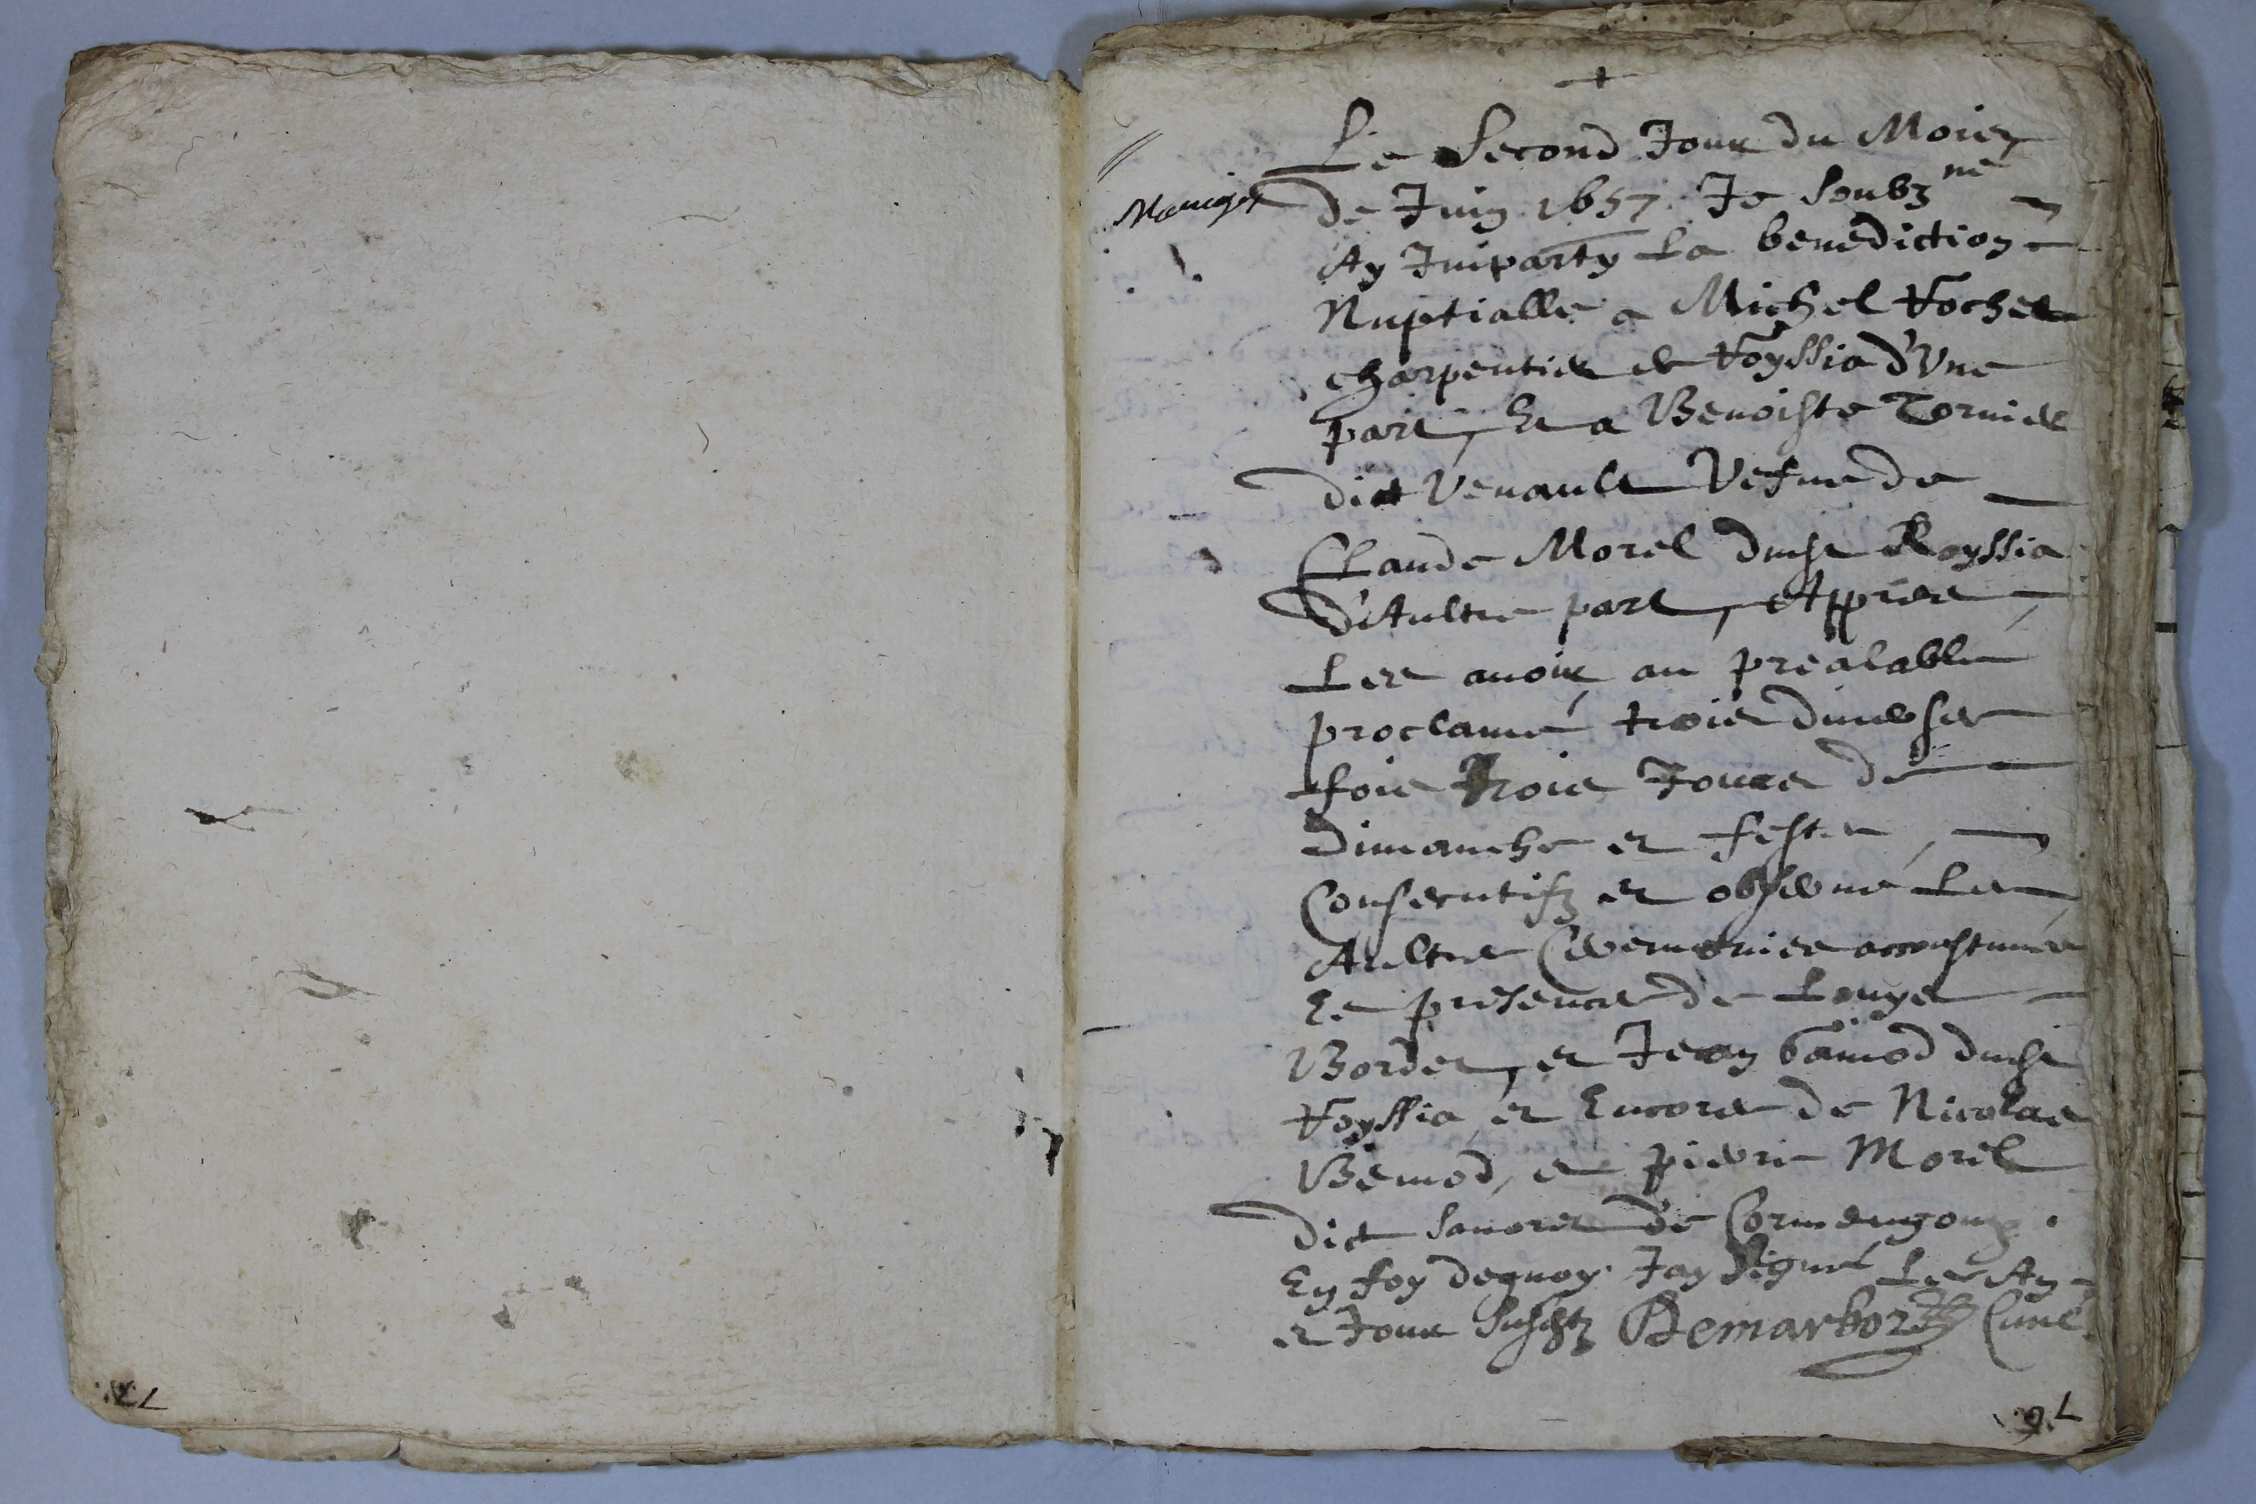 +
Le Second Jour du Mois
Mariage
de Juin 1657 Je Soubz né
Ay Imparty La benediction
Nuptialle a Michel Vochet
charpentier de Royssia d'Une
part, Et a Benoiste Tornier
dict Venault Vefue de
Claude Morel dudt Royssia
d'Aultre part, Appres
Les auoir au prealable
proclamé trois diuerses
fois Trois Jours de
Dimanche et festes,
Consecutifz et obserué Les
Aultres Ceremonies accoustumées
En presence de Louys
Bordet, et Jean bamod dudt
Royssia, et Encores de Nicolas
Bemod, et pierre Morel
dict de
En foy dequoy Jay Signé Les An
et Jour Susdtz Demarbor Curé